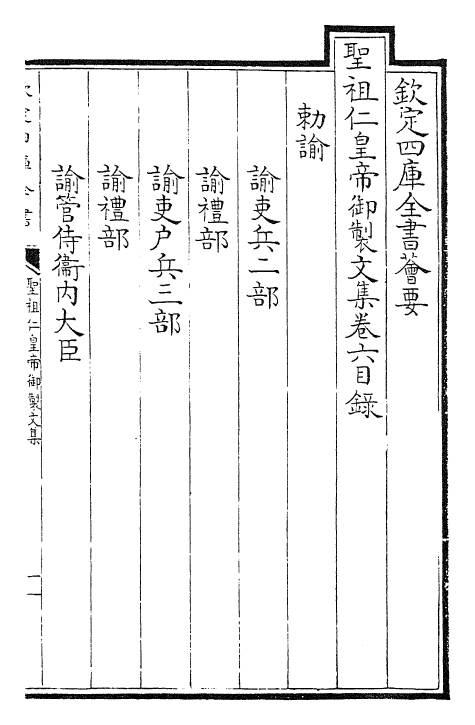 欽定四庫全書薈要
聖祖仁皇帝御製文集卷六目錄
勅諭
諭吏兵二部
諭禮部
諭吏户兵三部
諭禮部
諭管侍衞内大臣
聖祖仁皇帝御製文集